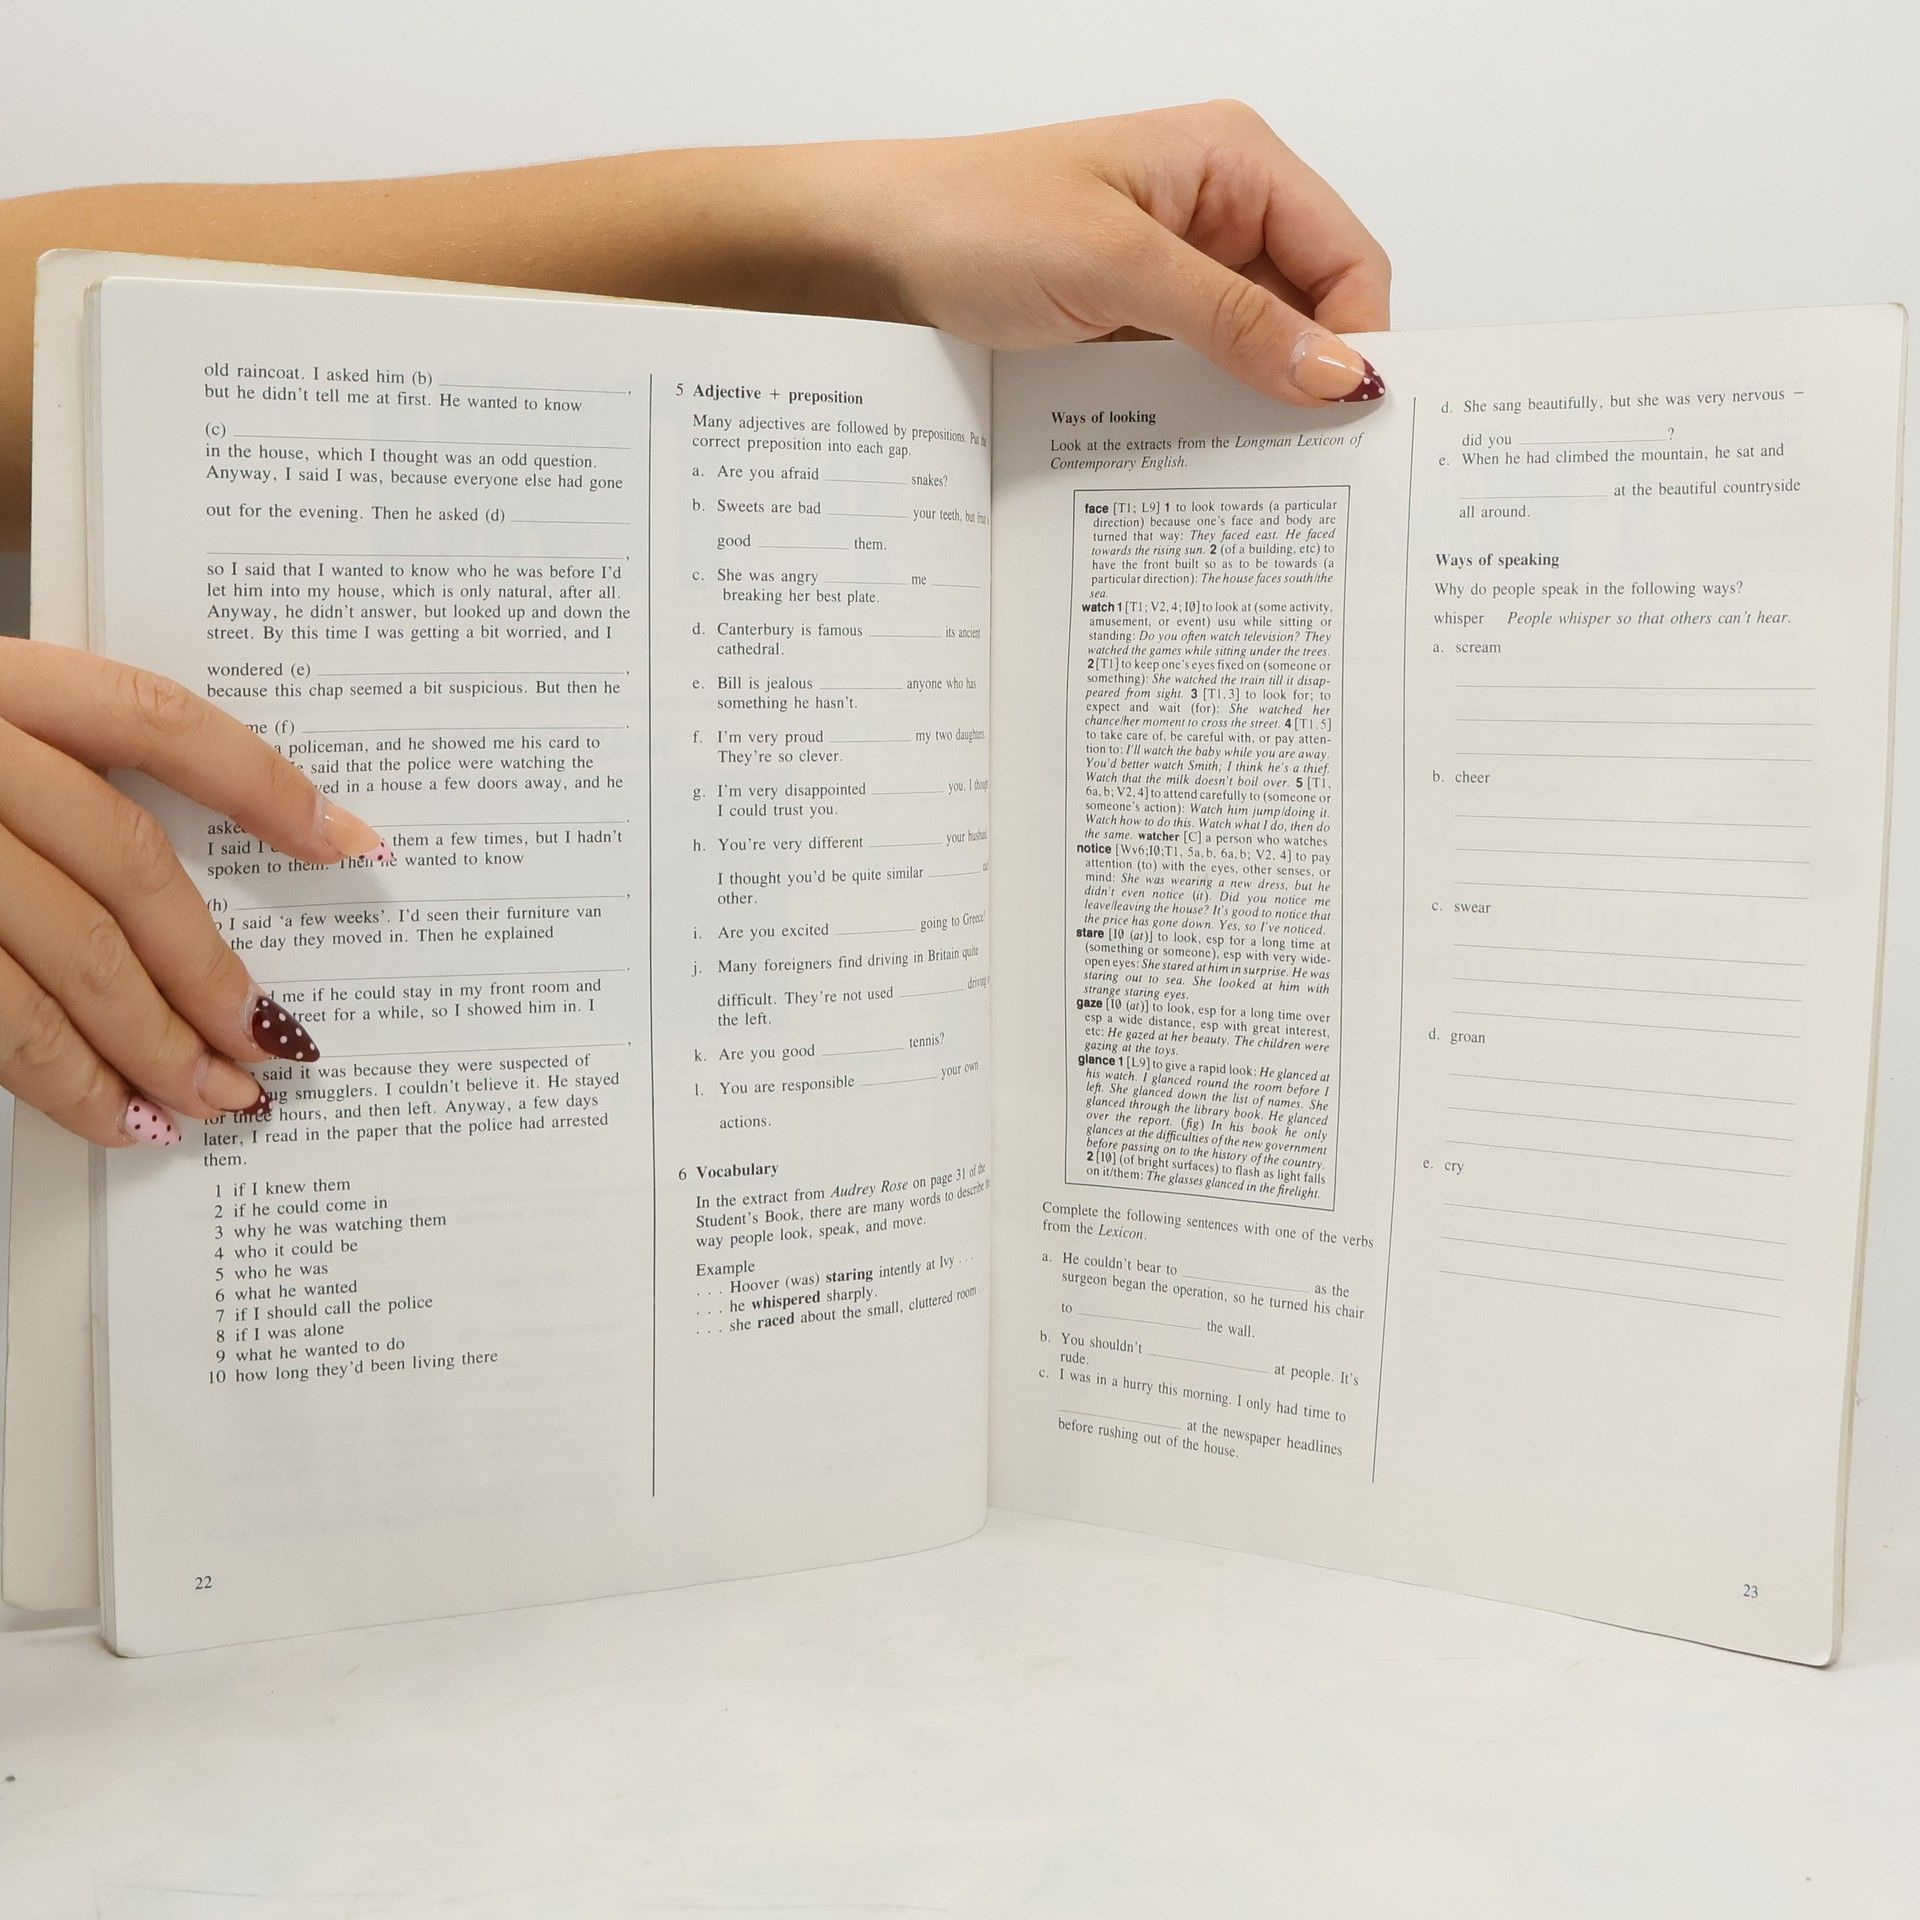 old raincoat. I asked him (b) ,
but he didn't tell me at first. He wanted to know
(c)
in the house, which I thought was an odd question.
Anyway, I said I was, because everyone else had gone
out for the evening. Then he asked (d)
,
so I said that I wanted to know who he was before I'd
let him into my house, which is only natural, after all.
Anyway, he didn't answer, but looked up and down the
street. By this time I was getting a bit worried, and I
wondered (e) ,
because this chap seemed a bit suspicious. But then he
me (f) .
a policeman, and he showed me his card to
said that the police were watching the
in a house a few doors away, and he
.
I said I them a few times, but I hadn't
spoken to them. Then he wanted to know
(h) ,
I said 'a few weeks'. I'd seen their furniture van
the day they moved in. Then he explained
.
me if he could stay in my front room and
for a while, so I showed him in. I
,
said it was because they were suspected of
smugglers. I couldn't believe it. He stayed
for three hours, and then left. Anyway, a few days
later, I read in the paper that the police had arrested
them.
1 if I knew them
2 if he could come in
3 why he was watching them
4 who it could be
5 who he was
6 what he wanted
7 if I should call the police
8 if I was alone
9 what he wanted to do
10 how long they'd been living there
22
5 Adjective + preposition
Many adjectives are followed by prepositions. Put the
correct preposition into each gap.
a. Are you afraid snakes?
b. Sweets are bad your teeth, but
good them.
c. She was angry me
breaking her best plate.
d. Canterbury is famous its ancient
cathedral.
e. Bill is jealous anyone who has
something he hasn't.
f. I'm very proud my two daughters.
They're so clever.
g. I'm very disappointed you. I
I could trust you.
h. You're very different your
I thought you'd be quite similar
other.
i. Are you excited going to Greece?
j. Many foreigners find driving in Britain quite
difficult. They're not used driving
the left.
k. Are you good tennis?
l. You are responsible your own
actions.
6 Vocabulary
In the extract from Audrey Rose on page 31 of the
Student's Book, there are many words to describe
way people look, speak, and move.
Example
. . . Hoover (was) staring intently at Ivy . . .
. . . he whispered sharply.
. . . she raced about the small, cluttered room
Ways of looking
Look at the extracts from the Longman Lexicon of
Contemporary English.
face [T1; L9] 1 to look towards (a particular
direction) because one's face and body are
turned that way: They faced east. He faced
towards the rising sun. 2 (of a building, etc) to
have the front built so as to be towards (a
particular direction): The house faces south/the
sea.
watch 1 [T1; V2, 4; I0] to look at (some activity,
amusement, or event) usu while sitting or
standing: Do you often watch television? They
watched the games while sitting under the trees.
2 [T1] to keep one's eyes fixed on (someone or
something): She watched the train till it disap-
peared from sight. 3 [T1, 3] to look for; to
expect and wait (for): She watched her
chance/her moment to cross the street. 4 [T1, 5]
to take care of, be careful with, or pay atten-
tion to: I'll watch the baby while you are away.
You'd better watch Smith; I think he's a thief.
Watch that the milk doesn't boil over. 5 [T1,
6a, b; V2, 4] to attend carefully to (someone or
someone's action): Watch him jump/doing it.
Watch how to do this. Watch what I do, then do
the same. watcher [C] a person who watches
notice [Wv6;I0;T1, 5a, b, 6a, b; V2, 4] to pay
attention (to) with the eyes, other senses, or
mind: She was wearing a new dress, but he
didn't even notice (it). Did you notice me
leave/leaving the house? It's good to notice that
the price has gone down. Yes, so I've noticed.
stare [I0 (at)] to look, esp for a long time at
(something or someone), esp with very wide-
open eyes: She stared at him in surprise. He was
staring out to sea. She looked at him with
strange staring eyes.
gaze [I0 (at)] to look, esp for a long time over
esp a wide distance, esp with great interest,
etc: He gazed at her beauty. The children were
gazing at the toys.
glance 1 [L9] to give a rapid look: He glanced at
his watch. I glanced round the room before I
left. She glanced down the list of names. She
glanced through the library book. He glanced
over the report. (fig) In his book he only
glances at the difficulties of the new government
before passing on to the history of the country.
2 [I0] (of bright surfaces) to flash as light falls
on it/them: The glasses glanced in the firelight.
Complete the following sentences with one of the verbs
from the Lexicon.
a. He couldn't bear to as the
surgeon began the operation, so he turned his chair
to the wall.
b. You shouldn't at people. It's
rude.
c. I was in a hurry this morning. I only had time to
at the newspaper headlines
before rushing out of the house.
d. She sang beautifully, but she was very nervous –
did you ?
e. When he had climbed the mountain, he sat and
at the beautiful countryside
all around.
Ways of speaking
Why do people speak in the following ways?
whisper People whisper so that others can't hear.
a. scream
b. cheer
c. swear
d. groan
e. cry
23